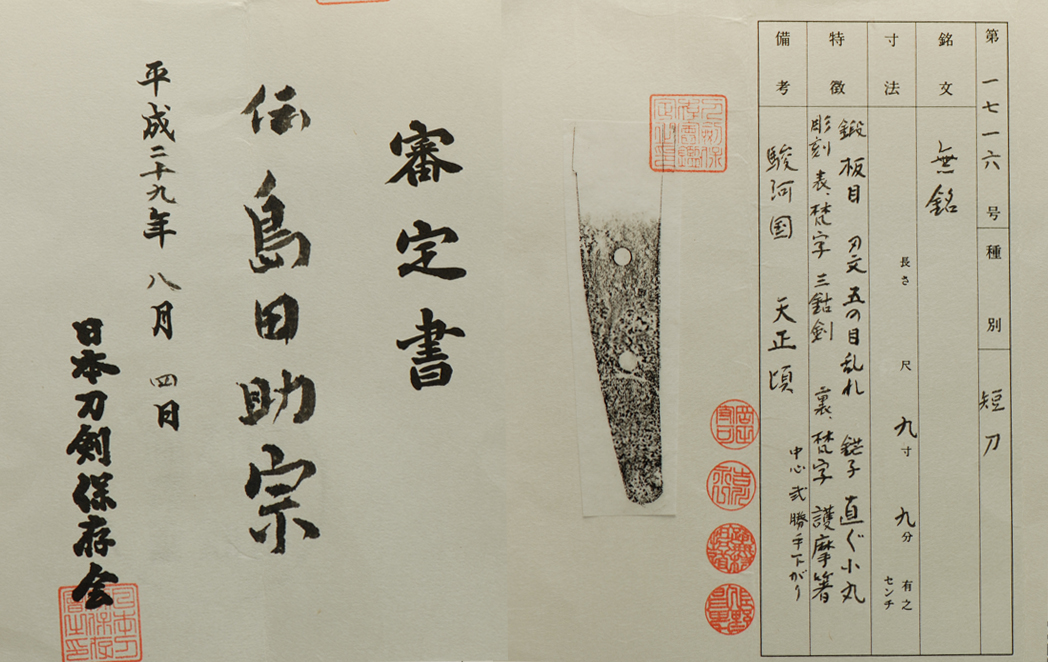 第一七一六号 種別 短刀
銘文 無銘
寸法 長さ 尺 九寸 九分 有之 センチ
特徴 鍛 板目 刃文 五の目乱れ 鋩子 直ぐ小丸
彫刻 表、梵字 三鈷剣 裏、梵字 護摩箸
備考 駿河国 天正頃
中心 弐 勝手下がり
審定書
伝 島田助宗
平成二十九年 八月 四日
日本刀剣保存会